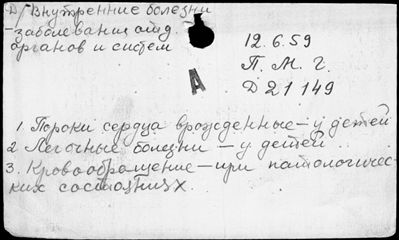 Д/Внутренние болезни
-заболевания отд.
органов и систем
12.6.59
П. М. Г.
Д 21149
А
1 Пороки сердца врожденные - у детей
2. Легочные болезни - у детей
3. Кровообращение - при патологичес-
ких состояниях.